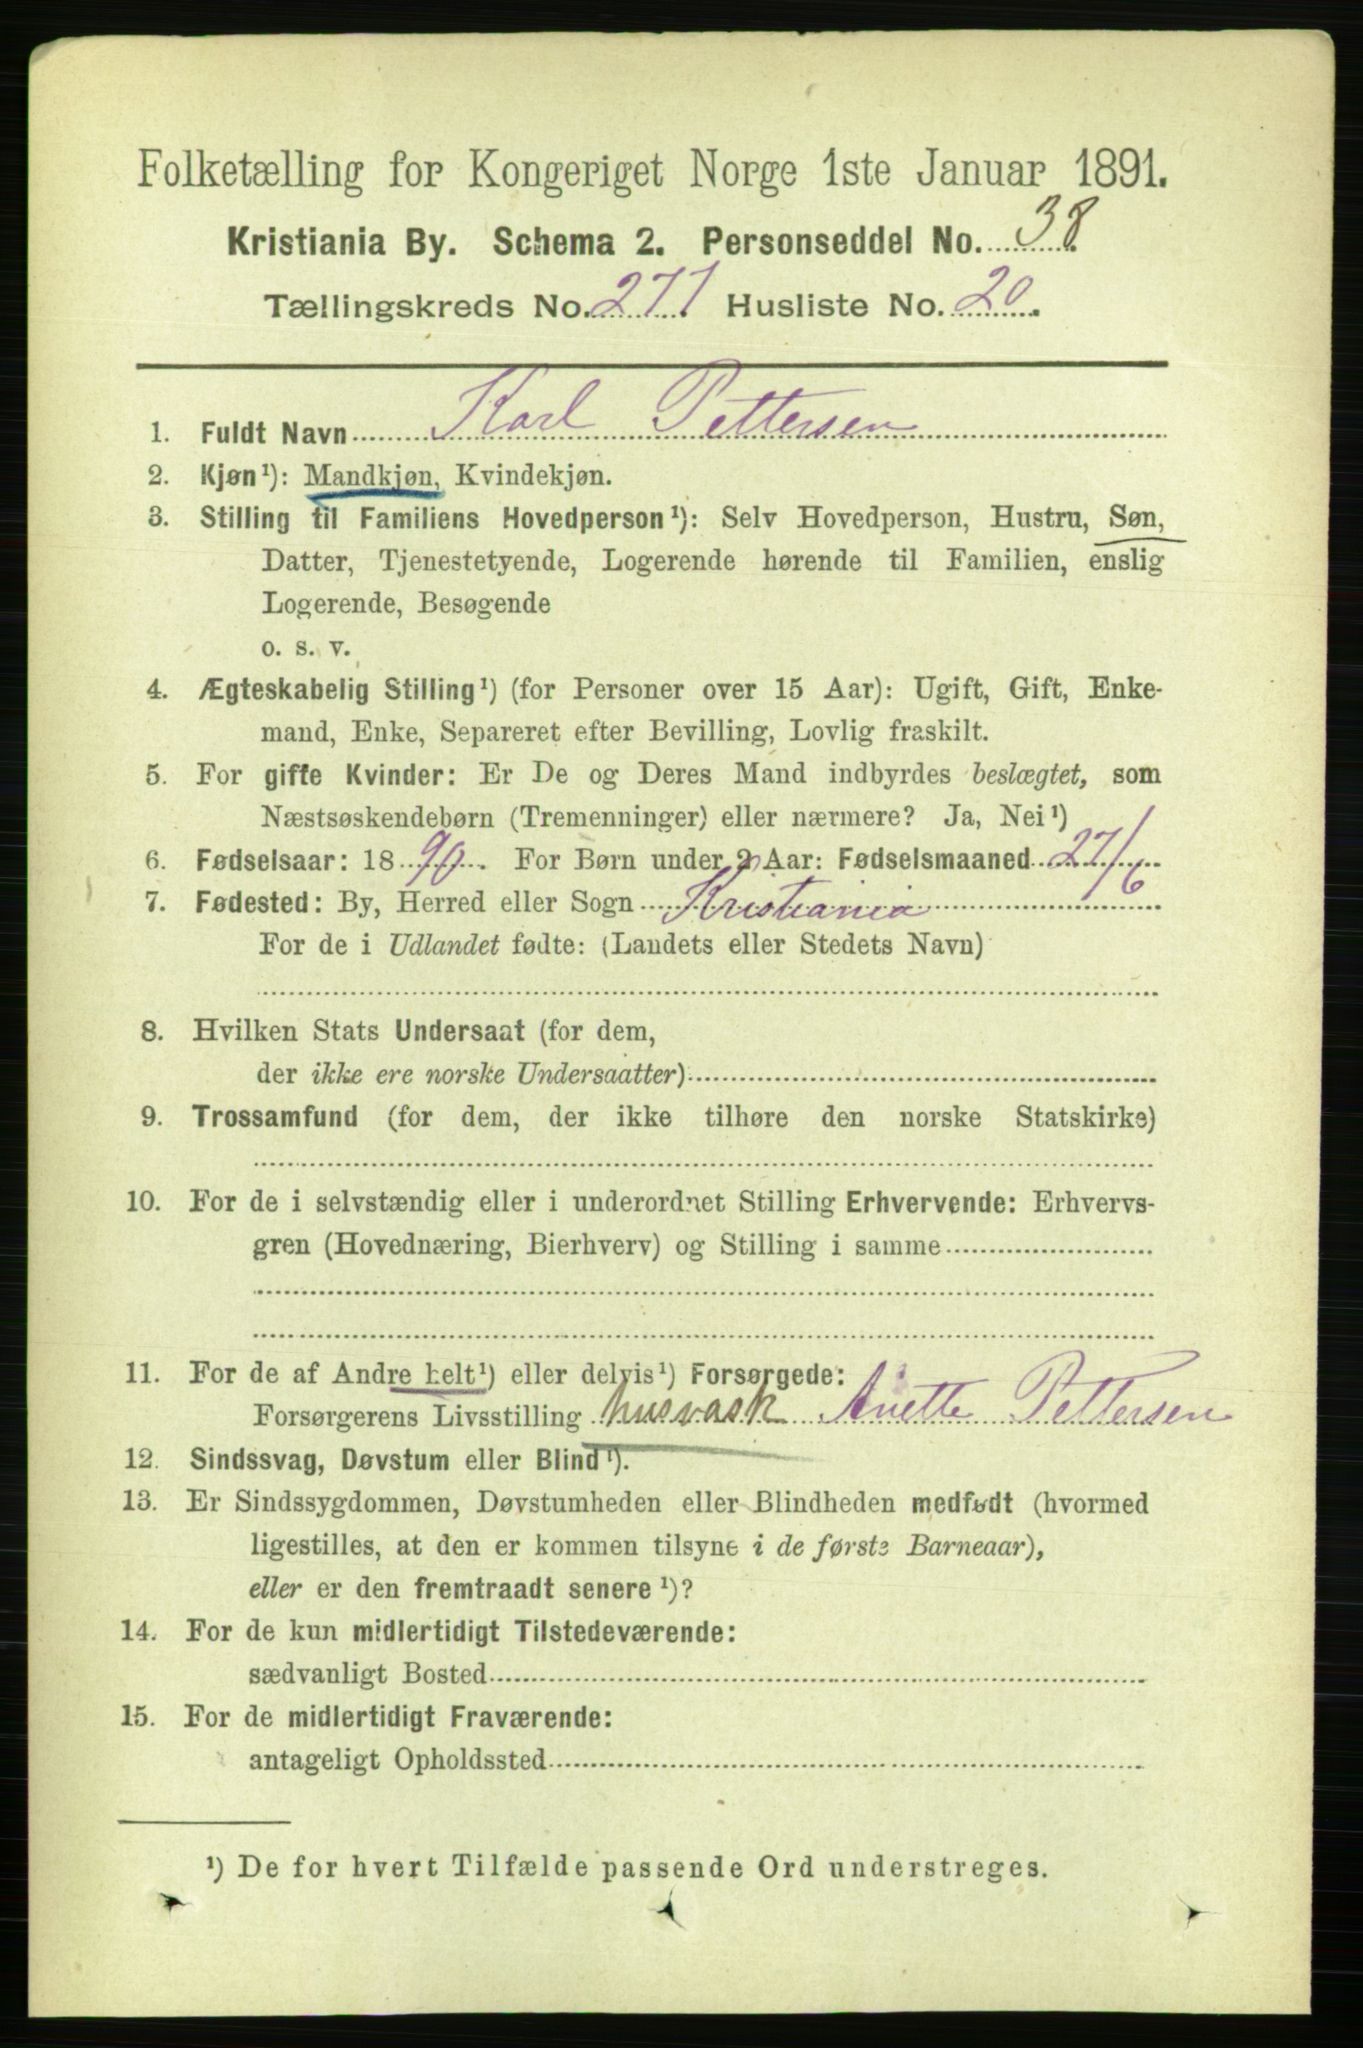 Folketælling for Kongeriget Norge 1ste Januar 1891.
Kristiania By. Schema 2. Personseddel No. 38.
Tællingskreds No. 271. Husliste No. 20.
1. Fuldt Navn Karl Pettersen
2. Kjøn¹): Mandkjøn, Kvindekjøn.
3. Stilling til Familiens Hovedperson¹): Selv Hovedperson, Hustru, Søn,
Datter, Tjenestetyende, Logerende hørende til Familien, enslig
Logerende, Besøgende
o. s. v.
4. Ægteskabelig Stilling¹) (for Personer over 15 Aar): Ugift, Gift, Enke-
mand, Enke, Separeret efter Bevilling, Lovlig fraskilt.
5. For gifte Kvinder: Er De og Deres Mand indbyrdes beslægtet, som
Næstsøskendebørn (Tremenninger) eller nærmere? Ja, Nei¹)
6. Fødselsaar: 1890. For Børn under 2 Aar: Fødselsmaaned 27/6
7. Fødested: By, Herred eller Sogn Kristiania
For de i Udlandet fødte: (Landets eller Stedets Navn)
8. Hvilken Stats Undersaat (for dem,
der ikke ere norske Undersaatter)
9. Trossamfund (for dem, der ikke tilhøre den norske Statskirke)
10. For de i selvstændig eller i underordnet Stilling Erhvervende: Erhvervs-
gren (Hovednæring, Bierhverv) og Stilling i samme
11. For de af Andre helt¹) eller delvis¹) Forsørgede:
Forsørgerens Livsstilling husvask Anette Pettersen
12. Sindssvag, Døvstum eller Blind¹).
13. Er Sindssygdommen, Døvstumheden eller Blindheden medfødt (hvormed
ligestilles, at den er kommen tilsyne i de første Barneaar),
eller er den fremtraadt senere¹)?
14. For de kun midlertidigt Tilstedeværende:
sædvanligt Bosted
15. For de midlertidigt Fraværende:
antageligt Opholdssted
¹) De for hvert Tilfælde passende Ord understreges.